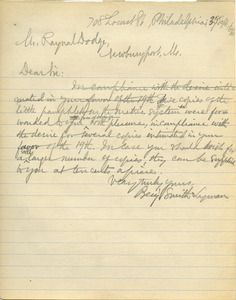 708 Locust St., Philadelphia,
Mr. Raynal Dodge,
Newburyport, Ms.
Dear Sir:
In compliance with the desire inti-
mated in your favor of the 19th, copies of the
little pamphlet on system were for-
warded to you with pleasure, in compliance with
the desire for several copies intimated in your
favor of the 19th. In case you should wish for
a larger number of copies, they can be supplied
to you at ten cents apiece.
Very truly yours,
Benj. Smith Lyman